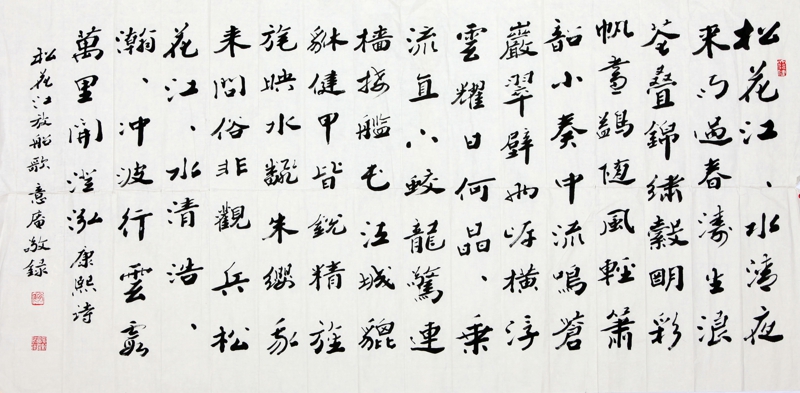 松花江、水清夜
来雨過春濤生浪
花疊錦繡縠明彩
帆畫鷁随風輕簫
韶小奏中流鳴蒼
巖翠壁兩岸橫浮
雲耀日何晶、乘
流直下蛟龍驚連
檣接艦屯江城貔
貅健甲皆銳精旌
旄映水翻朱纓我
来問俗非觀兵松
花江、水清浩、
瀚、冲波行雲霞
萬里開澄泓 康熙詩
松花江放船歌 意庵敬録